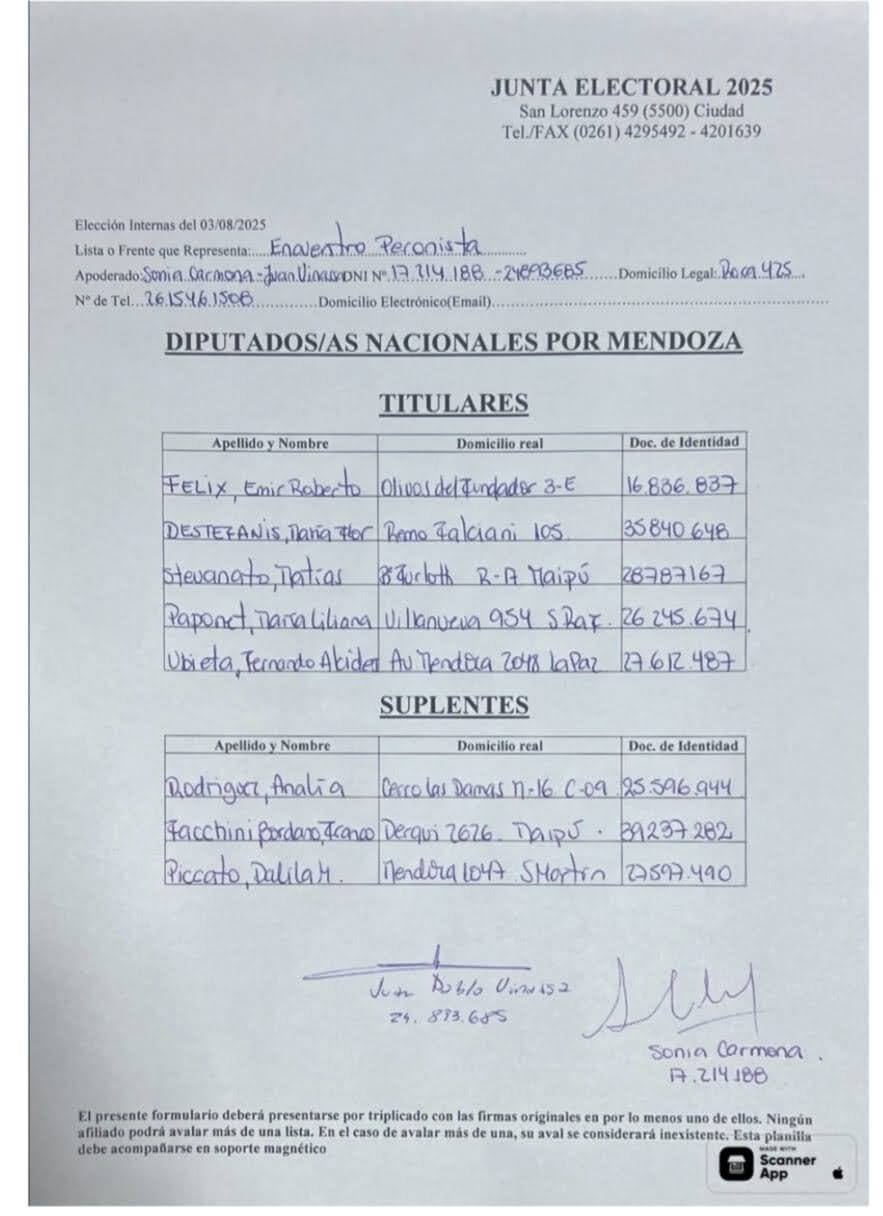 JUNTA ELECTORAL 2025
San Lorenzo 459 (5500) Ciudad
Tel./FAX (0261) 4295492 - 4201639
Elección Internas del 03/08/2025
Lista o Frente que Representa:....Encuentro Peronista............
Apoderado:Sonia Carmona - Juan Vinassa DNI Nº.17.214.188 - 24893685......Domicilio Legal:.Roca 425...
Nº de Tel...2615461508..............Domicilio Electrónico(Email)................................................................
DIPUTADOS/AS NACIONALES POR MENDOZA
TITULARES
Apellido y Nombre Domicilio real Doc. de Identidad
FELIX, Emir Roberto Olivos del Fundador 3-E 16.836.837
DESTEFANIS, Maria Flor Remo Falciani 105 35840648
Stevanato, Matias R-A Maipú 28787167
Paponet, Maria Liliana Villanueva 954 S Raf. 26.245.674
Ubieta, Fernando Alcides Av Mendoza 2048 La Paz 27.612.487
SUPLENTES
Apellido y Nombre Domicilio real Doc. de Identidad
Rodriguez, Analía Cerro las Damas M-16 C-09 25.596.944
Facchini Bordano, Franco Derqui 2626 Maipú. 39237282
Piccato, Dalila M. Mendoza 1047 SMartin 27597.490
Juan Pablo Vinassa
24.893.685
Sonia Carmona.
17.214.188
El presente formulario deberá presentarse por triplicado con las firmas originales en por lo menos uno de ellos. Ningún
afiliado podrá avalar más de una lista. En el caso de avalar más de una, su aval se considerará inexistente. Esta planilla
debe acompañarse en soporte magnético
MADE WITH
Scanner
App